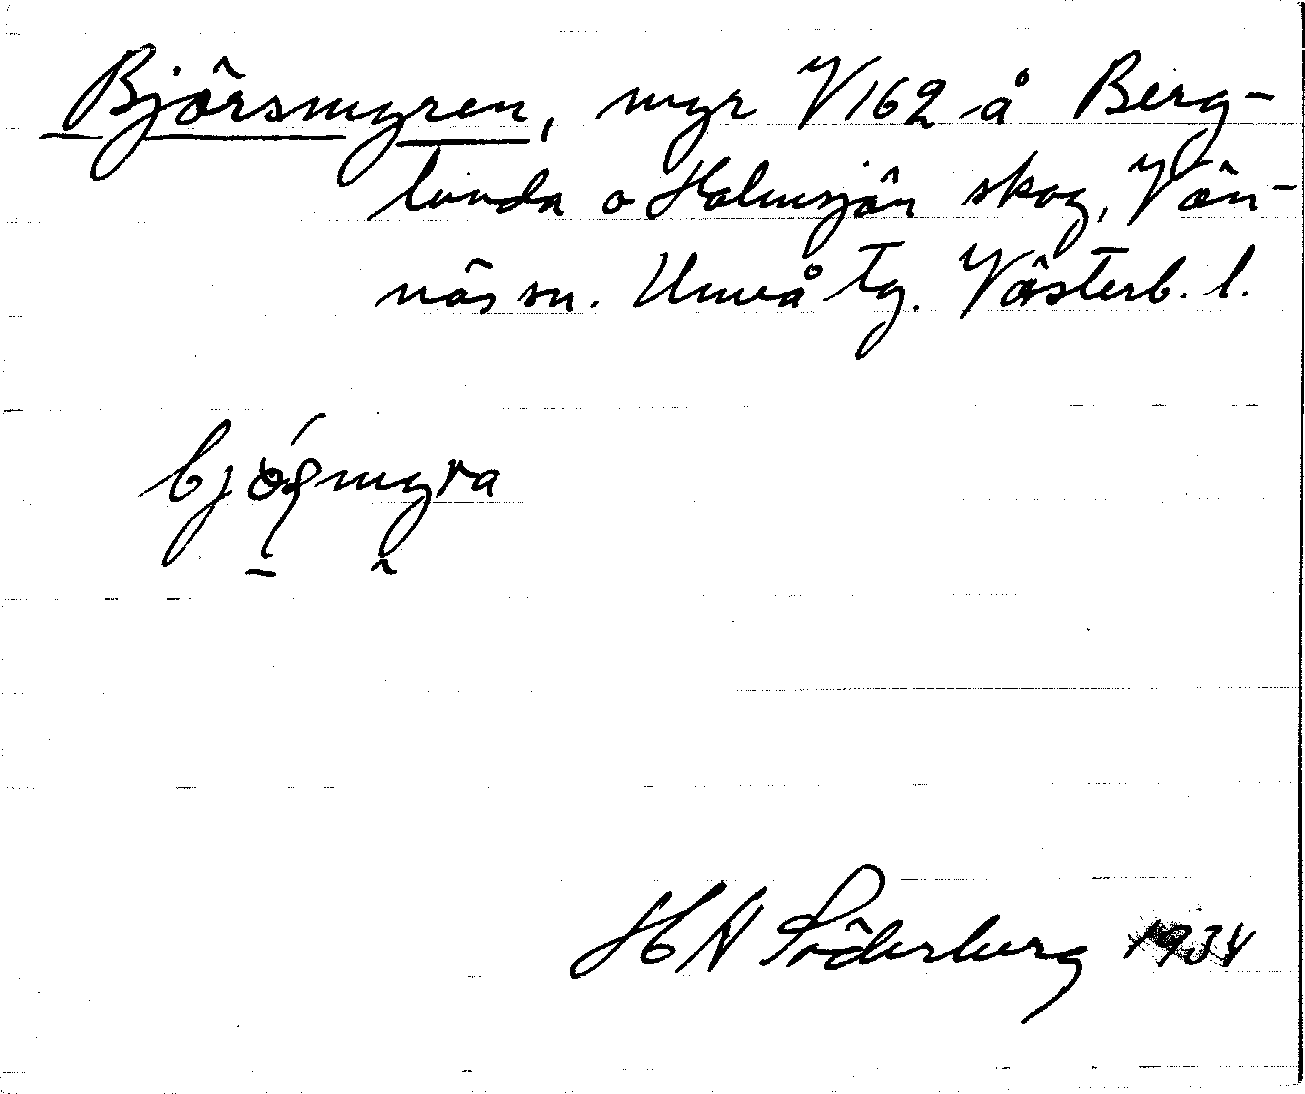 Björsmyren, myr V162 å Berg-
lunda o Holmsjön skog, Vän-
näs sn. Umeå tg. Västerb. l.
H N Söderberg 1934